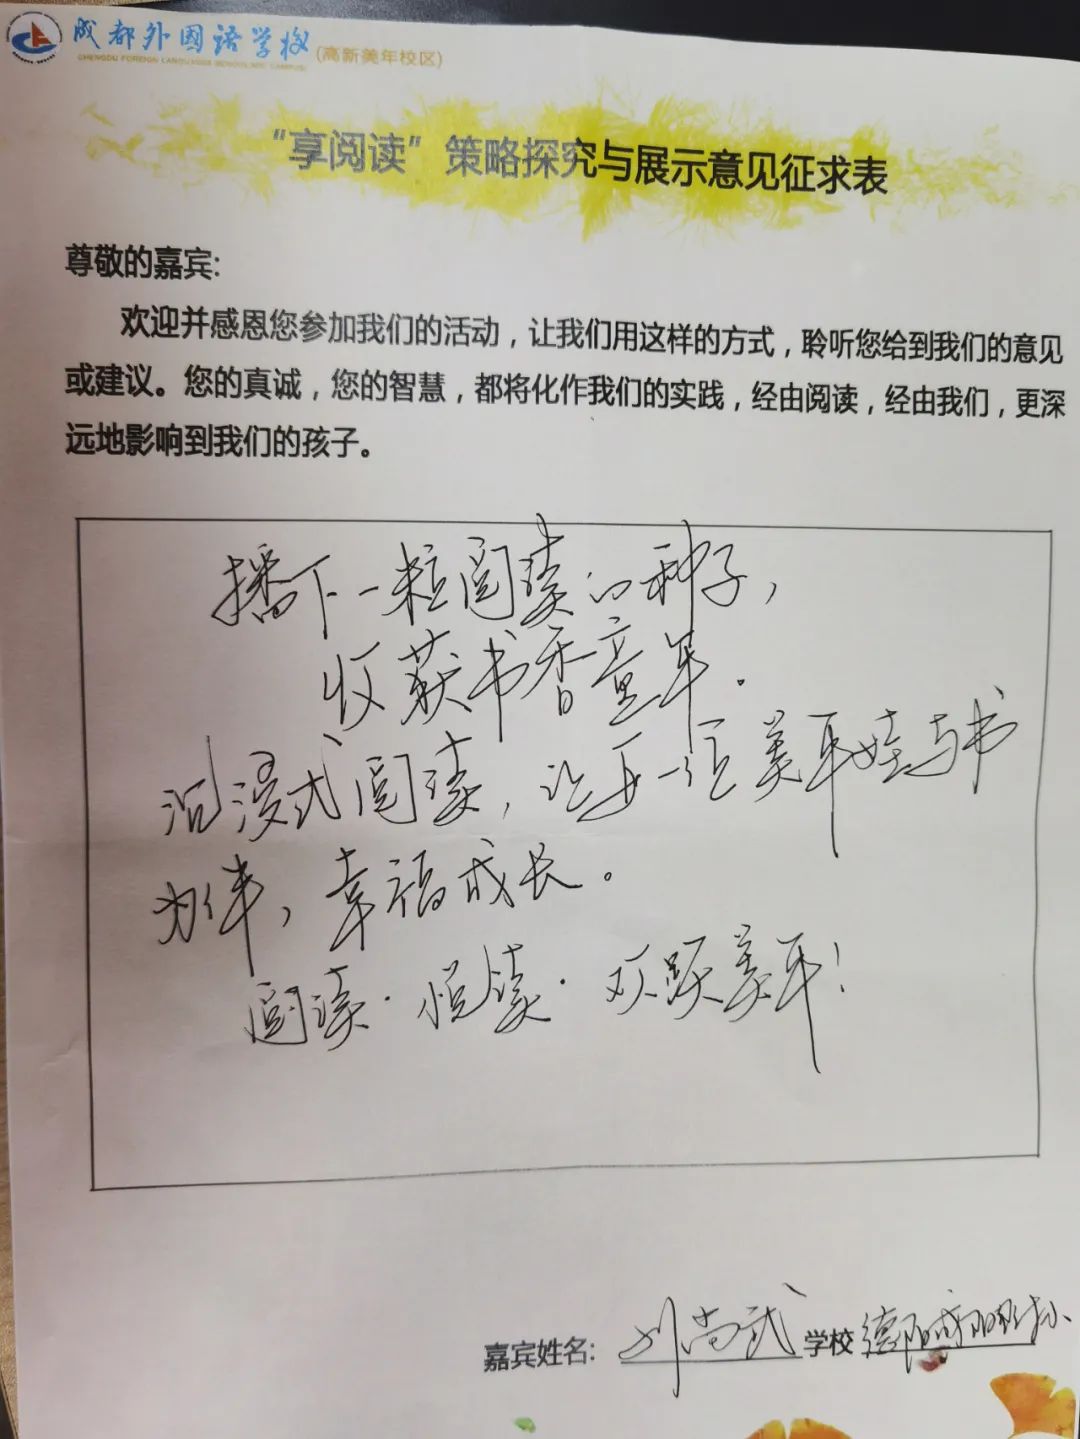 成都外国语学校(高新美年校区)
CHENGDU FOREIGN LANGUAGES SCHOOL
“享阅读”策略探究与展示意见征求表
尊敬的嘉宾:
欢迎并感恩您参加我们的活动，让我们用这样的方式，聆听您给到我们的意见
或建议。您的真诚，您的智慧，都将化作我们的实践，经由阅读，经由我们，更深
远地影响到我们的孩子。
播下一粒阅读的种子，
收获书香童年。
沉浸式阅读，让每一位美年娃与书
为伴，幸福成长。
阅读·悦读·欢跃美年！
嘉宾姓名: 刘尚武 学校 德阳